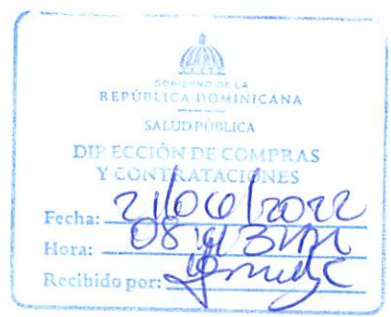 GOBIERNO DE LA
REPÚBLICA DOMINICANA
SALUD PÚBLICA
DIRECCIÓN DE COMPRAS
Y CONTRATACIONES
Fecha: 21/06/2022
Hora:
Recibido por: